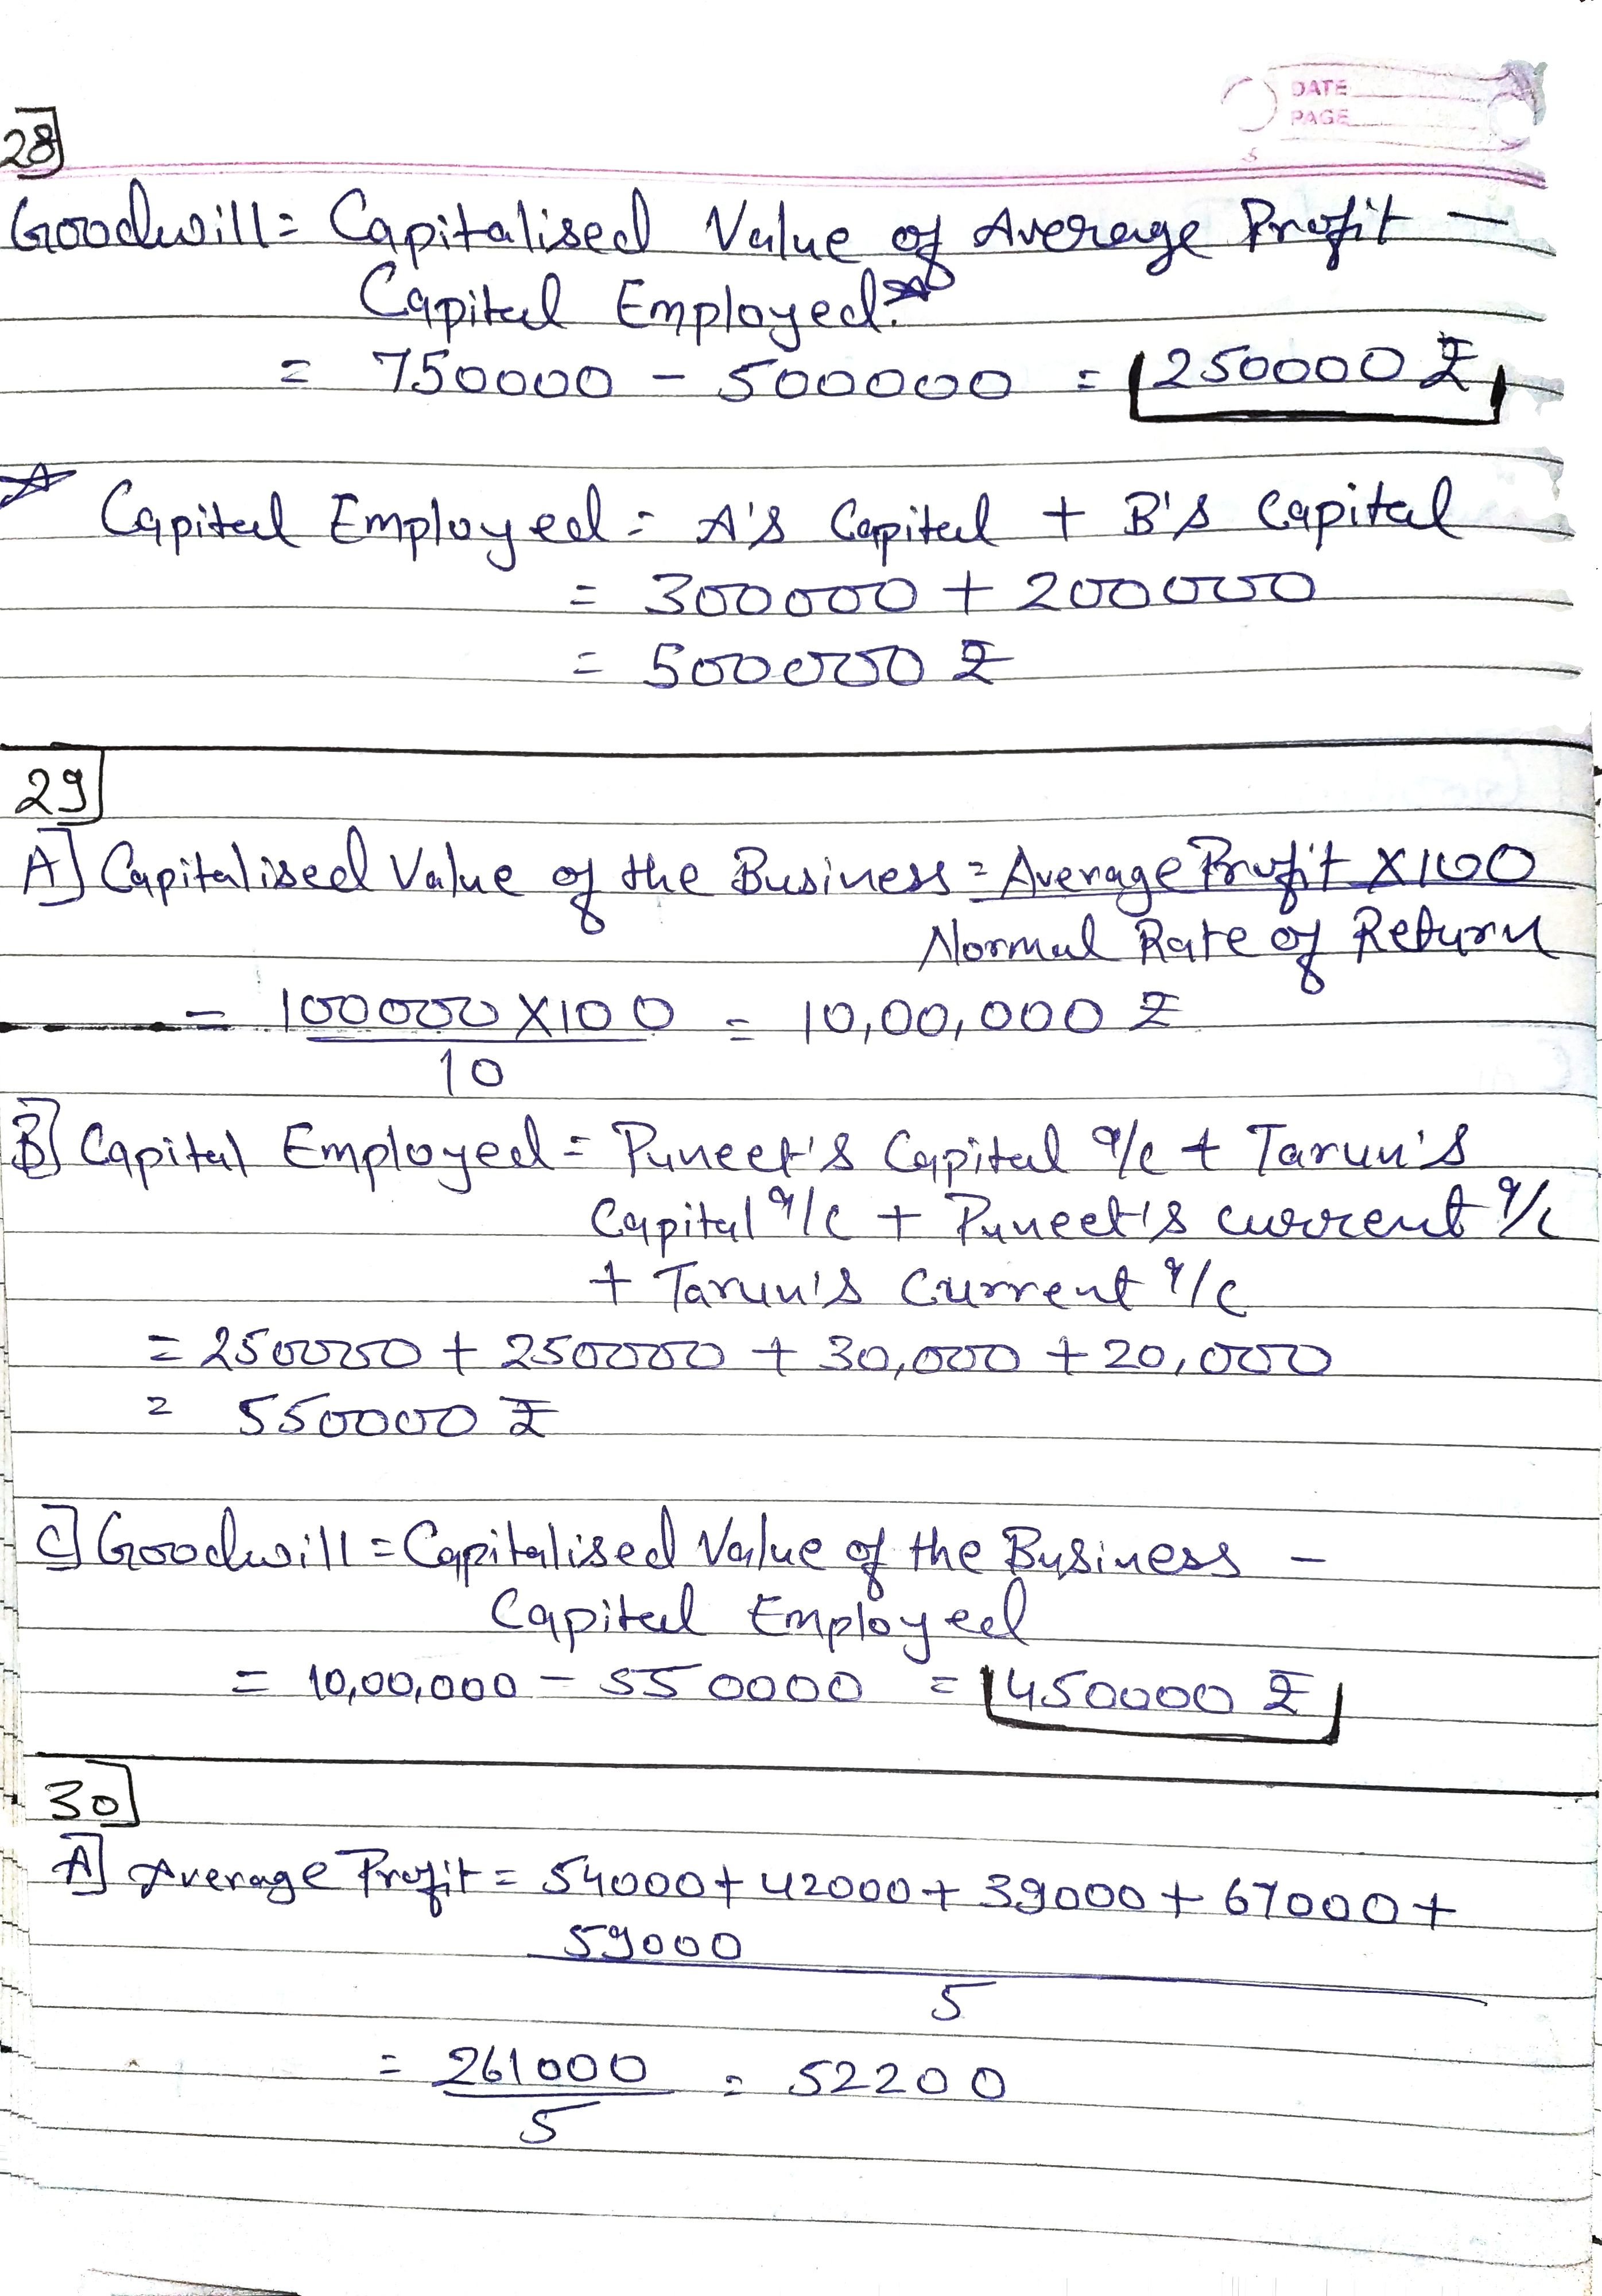 DATE
PAGE
28
Goodwill = Capitalised Value of Average Profit -
Capital Employed.☆
= 750000 - 500000 = 250000 ₹
☆ Capital Employed = A's Capital + B's Capital
= 300000 + 200000
= 500000 ₹
29
A] Capitalised Value of the Business = Average Profit X100
Normal Rate of Return
= 100000 X100 = 10,00,000 ₹
10
B] Capital Employed = Puneet's Capital a/c + Tarun's
Capital a/c + Puneet's current a/c
+ Tarun's Current a/c
= 250000 + 250000 + 30,000 + 20,000
= 550000 ₹
C] Goodwill = Capitalised Value of the Business -
Capital Employed
= 10,00,000 - 550000 = 450000 ₹
30
A] Average Profit = 54000 + 42000 + 39000 + 67000 +
59000
5
= 261000 = 52200
5